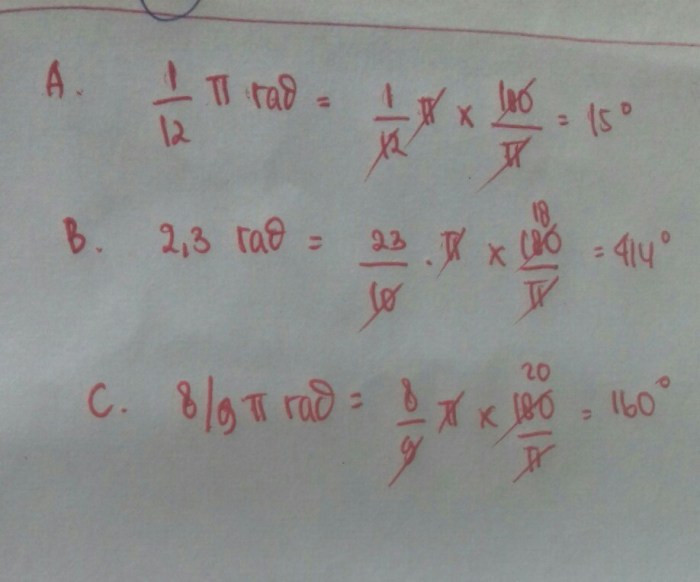 A. 1/12 π rad = 1/12 π × 180/π = 15°
B. 2,3 rad = 23/10 . π × 18 180/π = 414°
C. 8/9 π rad = 8/9 π × 20 180/π = 160°